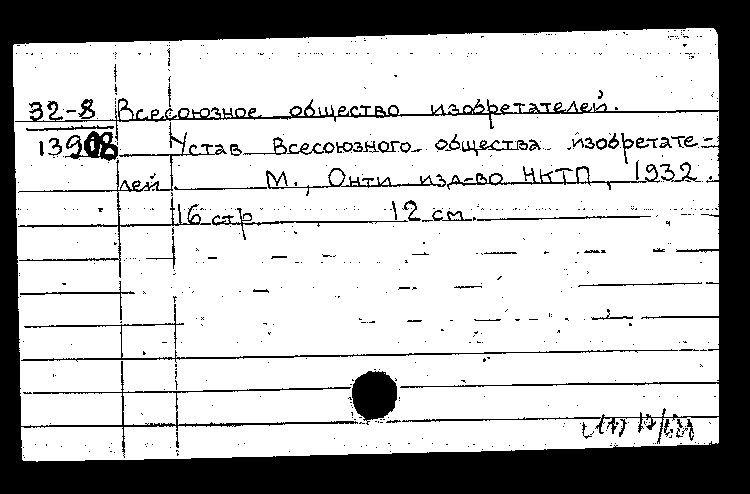 32-8 Всесоюзное общество изобретателей.
Устав Всесоюзного общества изобретате-
лей. М., Онти изд-во НКТП, 1932.
16 стр. 12 см.